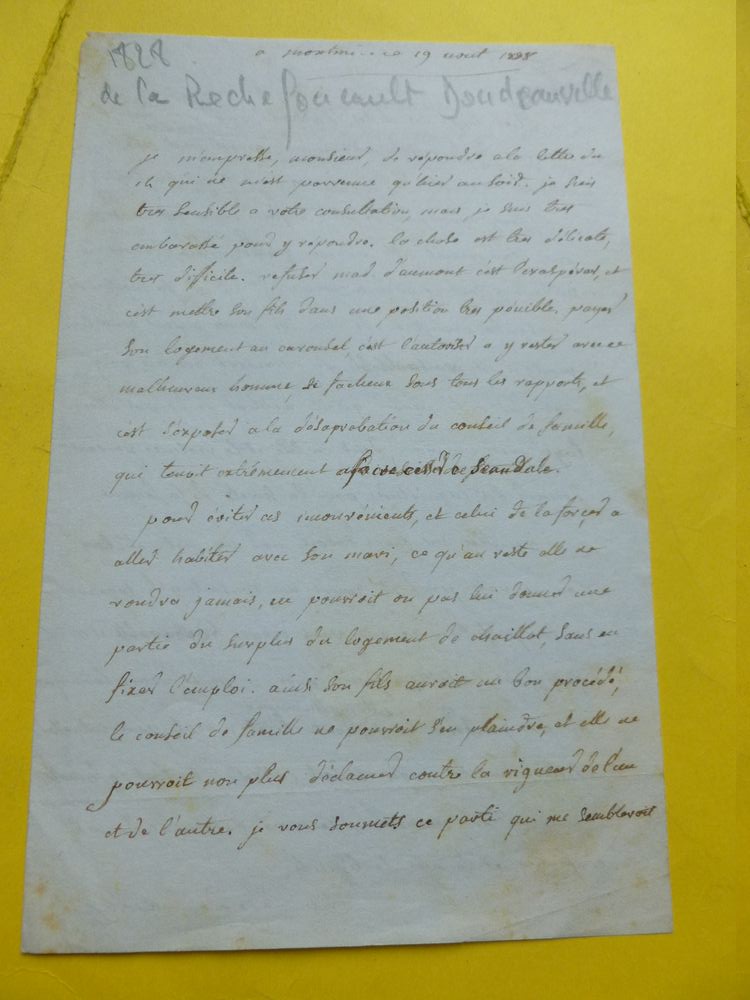 1828
a 19 aout 1828
de la Rochefoucault Doudeauville
je m'empresse, monsieur, de répondre a la lettre du
qui ne m'est parvenue qu'hier au soir. je suis
tres sensible a votre consultation, mais je suis tres
embarassé pour y répondre. la chose est tres délicate,
tres difficile. refuser mad d'aumont c'est l'exaspérer, et
c'est mettre son fils dans une position tres pénible. payer
son logement au carousel, c'est l'autoriser a y rester avec ce
malheureux homme, si facheux sous tous les rapports, et
c'est s'exposer a la désaprobation du conseil de famille,
qui tenoit extrêmement a scandale.
pour éviter ces inconvénients, et celui de la forcer a
aller habiter avec son mari, ce qu'au reste elle ne
voudra jamais, ne pourroit on pas lui donner une
partie du surplus du logement de chaillot, sans en
fixer l'emploi. ainsi son fils auroit un bon procédé,
le conseil de famille ne pourroit s'en plaindre, et elle ne
pourroit non plus déclamer contre la rigueur de l'un
et de l'autre. je vous soumets ce parti qui me sembleroit